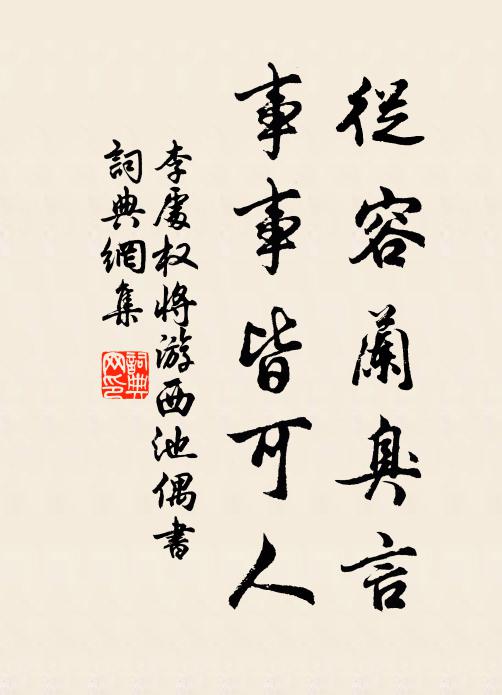 從容蘭臭言
事事皆可人
李處权將游西池偶書
詞典網集
詞典网印